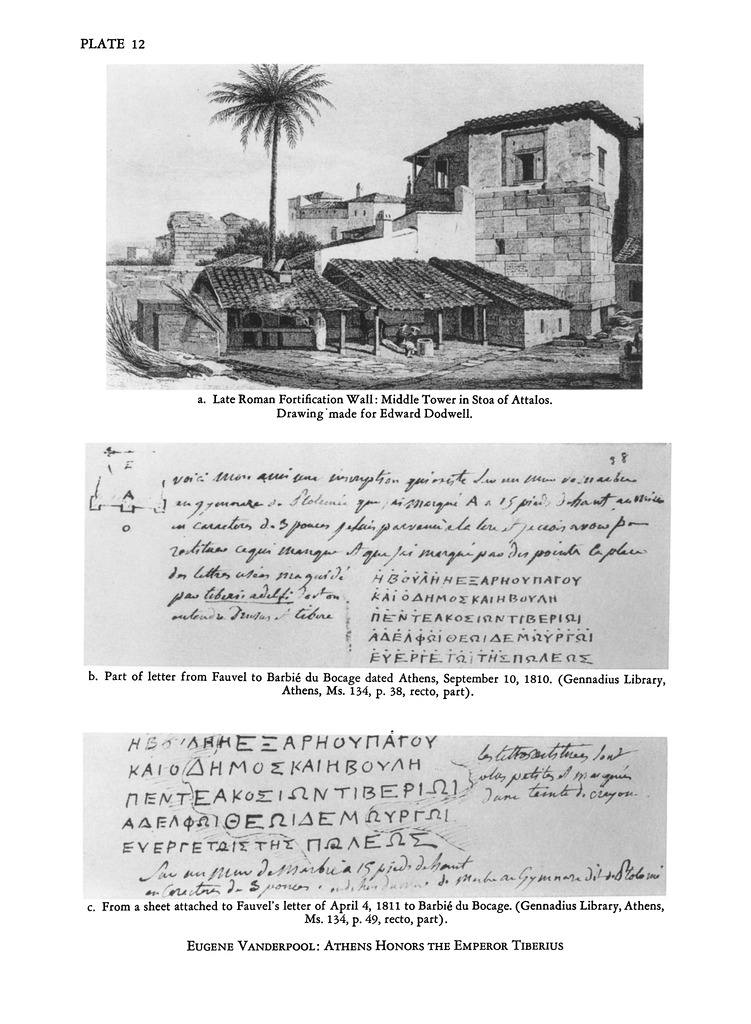 PLATE 12
a. Late Roman Fortification Wall: Middle Tower in Stoa of Attalos.
Drawing made for Edward Dodwell.
38
E
A
O
voici mon ami une inscription qui existe sur un mur de marbre
au gymnase de Ptolemée que j'ai marqué A a 15 pieds de haut
en caracteres de 3 pouces je suis parvenu a la lire et je crois avoir pu
restituer ce qui manque et que j'ai marqué par des points la place
des lettres usées
par tiberii adelfi
entendre Drusus et tibere
ΗΒΟΥΛΗΗΕΞΑΡΗΟΥΠΑΓΟΥ
ΚΑΙΟΔΗΜΟΣΚΑΙΗΒΟΥΛΗ
ΠΕΝΤΕΑΚΟΣΙΩΝΤΙΒΕΡΙΩΙ
ΑΔΕΛΦΩΙΘΕΩΙΔΕΜΩΥΡΓΩΙ
ΕΥΕΡΓΕΤΩΙΤΗΣΠΩΛΕΩΣ
b. Part of letter from Fauvel to Barbié du Bocage dated Athens, September 10, 1810. (Gennadius Library,
Athens, Ms. 134, p. 38, recto, part).
ΗΒΟΥΛΗΗΕΞΑΡΗΟΥΠΑΓΟΥ
ΚΑΙΟΔΗΜΟΣΚΑΙΗΒΟΥΛΗ
ΠΕΝΤΕΑΚΟΣΙΩΝΤΙΒΕΡΙΩΙ
ΑΔΕΛΦΩΙΘΕΩΙΔΕΜΩΥΡΓΩΙ
ΕΥΕΡΓΕΤΩΙΣΤΗΣ ΠΩΛΕΩΣ
les lettres restituees sont
plus petites et marquées
d'une teinte de crayon
Sur un mur de Marbre a 15 pieds de haut
en Caracteres de 3 pouces de Marbre au Gymnase dit de Ptolomé
c. From a sheet attached to Fauvel's letter of April 4, 1811 to Barbié du Bocage. (Gennadius Library, Athens,
Ms. 134, p. 49, recto, part).
EUGENE VANDERPOOL: ATHENS HONORS THE EMPEROR TIBERIUS